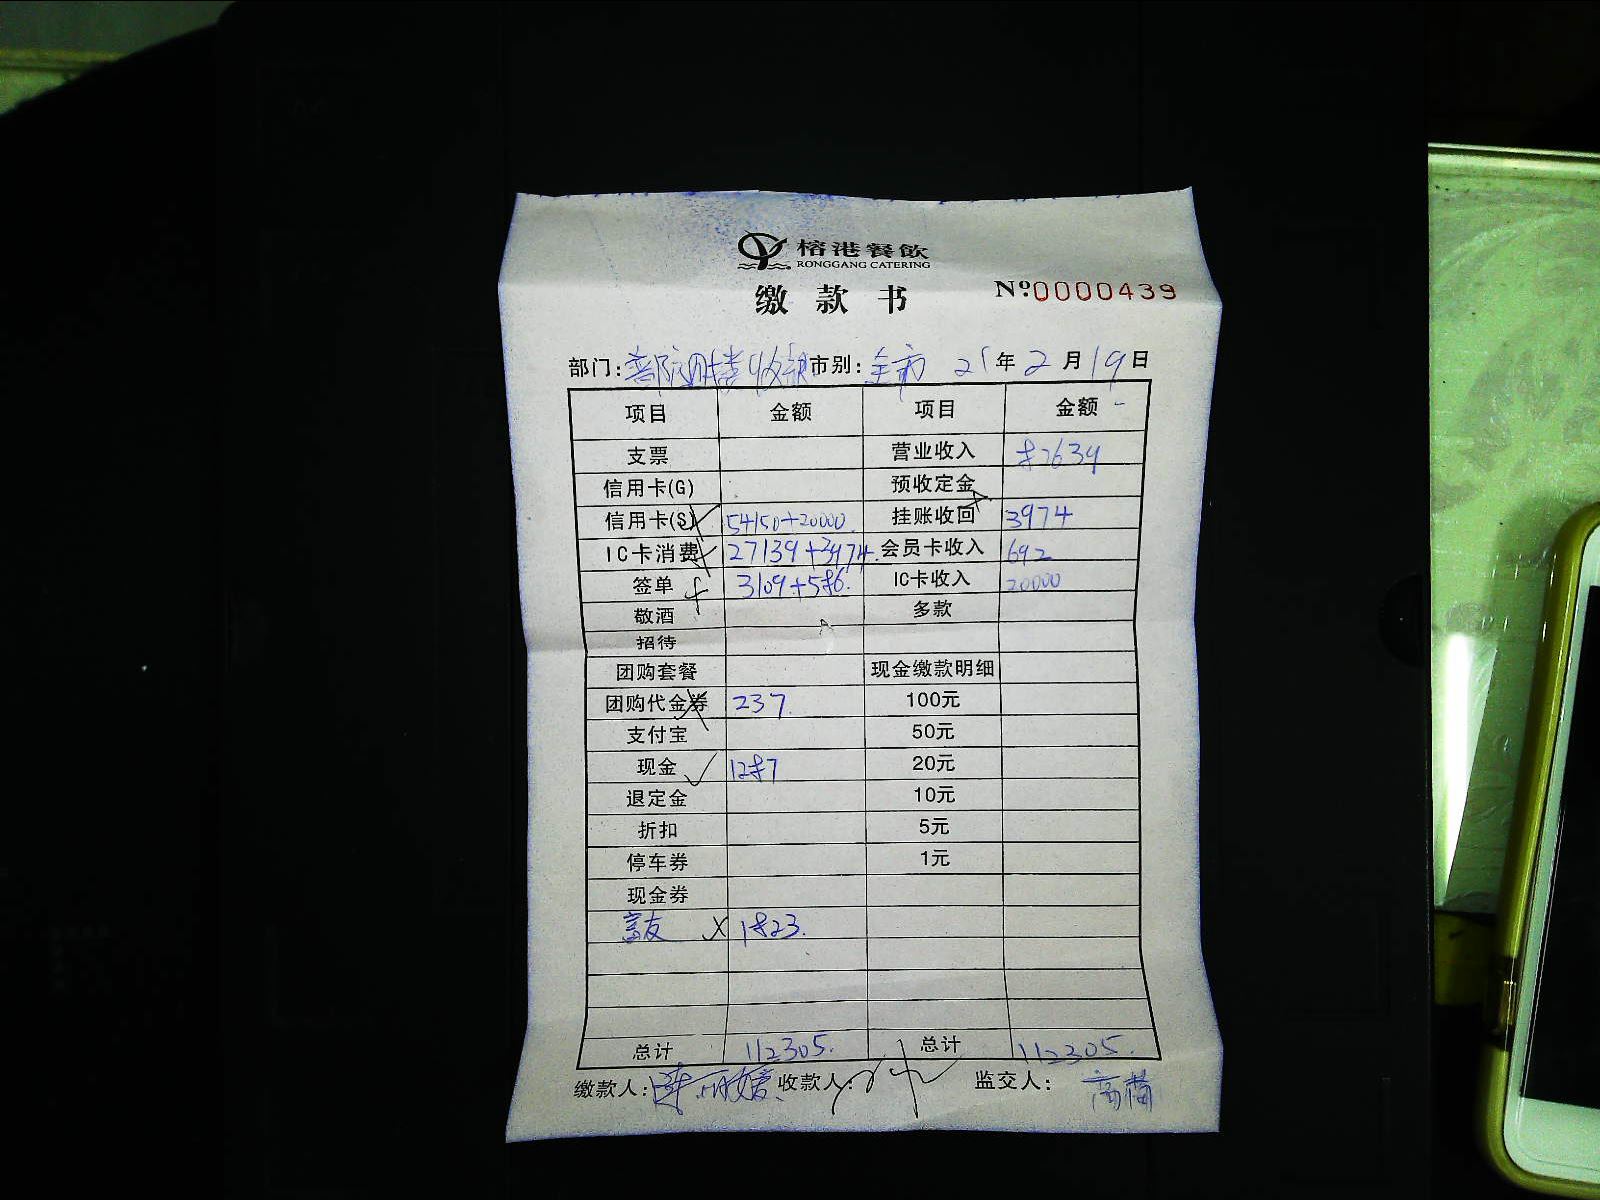 榕港餐飲
RONGGANG CATERING
缴款书 Nº:0000439
部门: 市别: 全市 21年2月19日
项目 金额 项目 金额
支票 营业收入 87639
信用卡(G) 预收定金
信用卡(S) 54150+20000 挂账收回 3974
IC卡消费 27139+3974. 会员卡收入 692
签单 3109+586. IC卡收入 20000
敬酒 多款
招待
团购套餐 现金缴款明细
团购代金券 237. 100元
支付宝 50元
现金 1287 20元
退定金 10元
折扣 5元
停车券 1元
现金券
富友 1823.
总计 112305. 总计 112305.
缴款人: 收款人: 监交人: